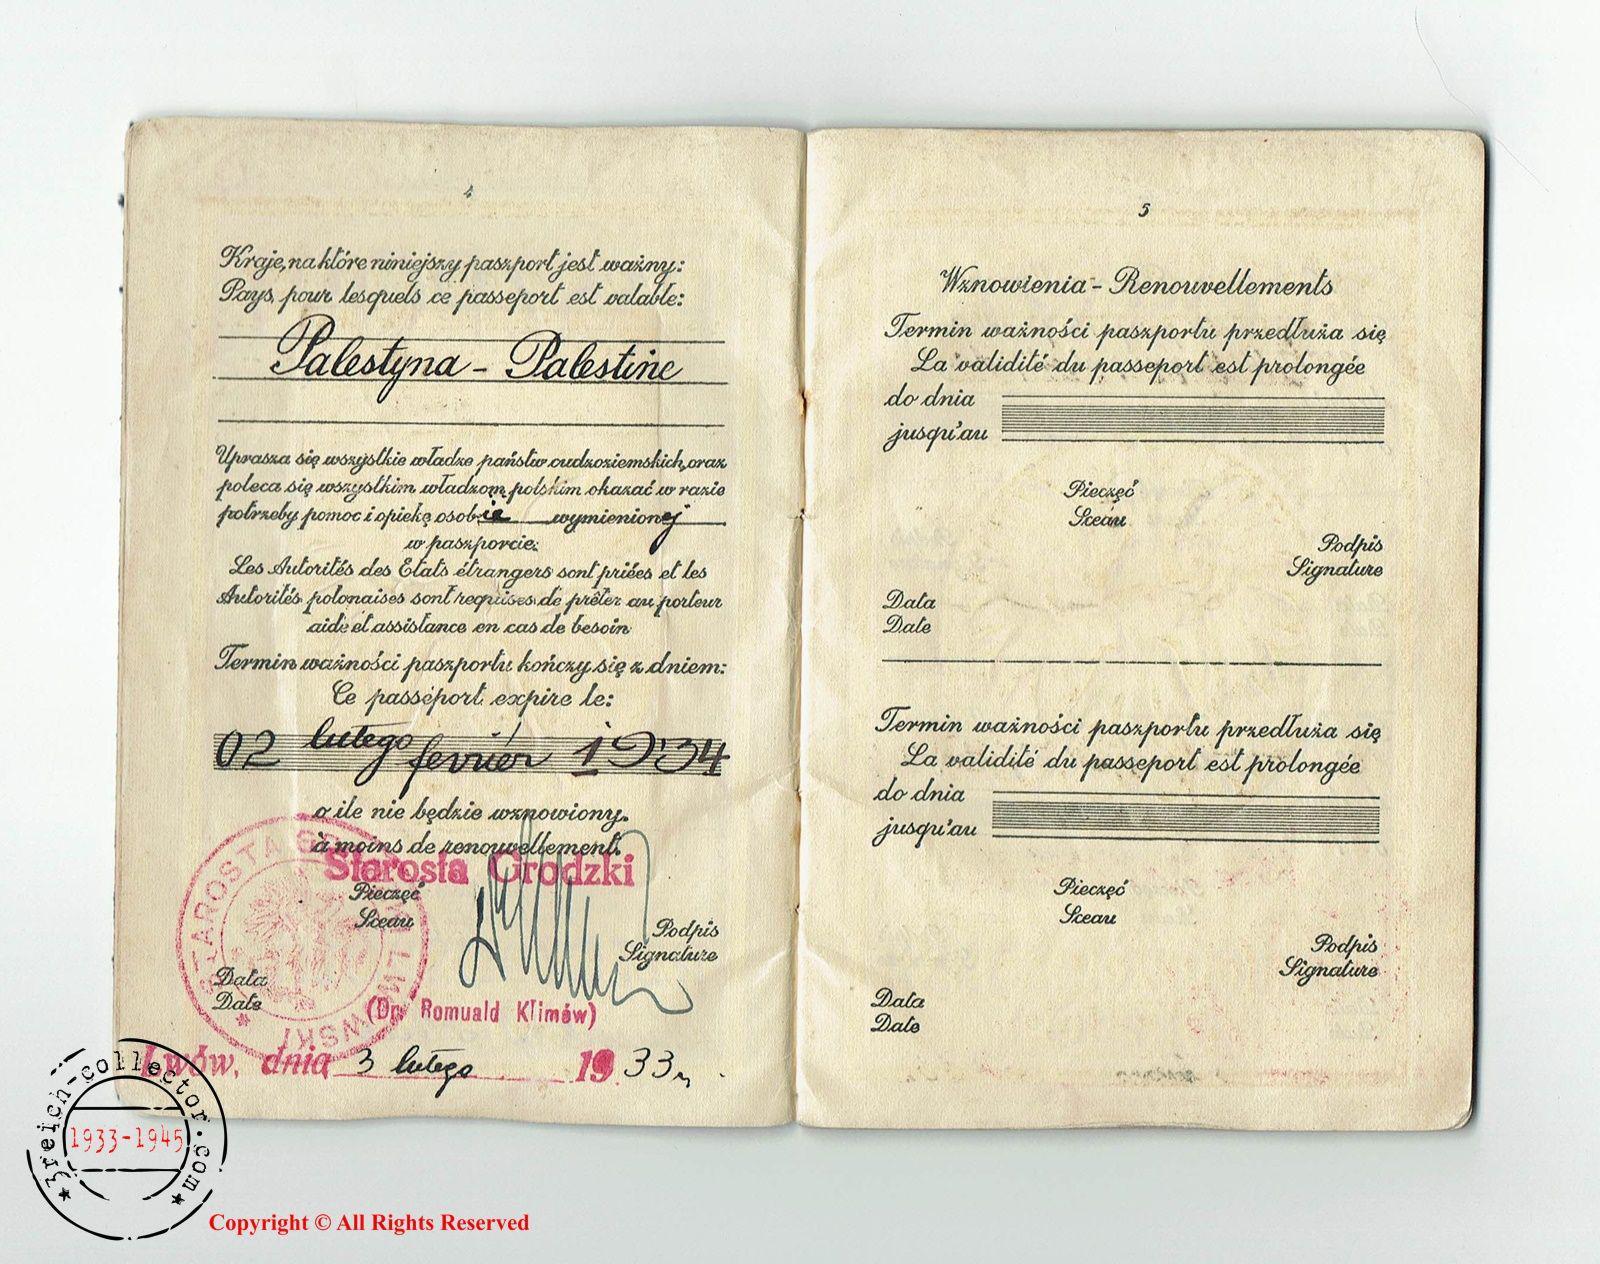 4
Kraje, na które niniejszy paszport jest ważny:
Pays, pour lesquels ce passeport est valable:
Palestyna - Palestine
Uprasza się wszystkie władze państw cudzoziemskich, oraz
poleca się wszystkim władzom polskim okazać w razie
potrzeby pomoc i opiekę osobie wymienionej
w paszporcie.
Les Autorités des Etats étrangers sont priées et les
Autorités polonaises sont requises de prêter au porteur
aide et assistance en cas de besoin
Termin ważności paszportu kończy się z dniem:
Ce passeport expire le:
02 lutego fevrier 1934
o ile nie będzie wznowiony.
à moins de renouvellement.
Starosta Grodzki
Pieczęć
Sceau
Podpis
Signature
Data
Date
(Dr. Romuald Klimów)
Lwów, dnia 3 lutego 1933 r.
5
Wznowienia - Renouvellements
Termin ważności paszportu przedłuża się
La validité du passeport est prolongée
do dnia
jusqu'au
Pieczęć
Sceau
Podpis
Signature
Data
Date
Termin ważności paszportu przedłuża się
La validité du passeport est prolongée
do dnia
jusqu'au
Pieczęć
Sceau
Podpis
Signature
Data
Date
3reich-collector.com
1933-1945
Copyright © All Rights Reserved